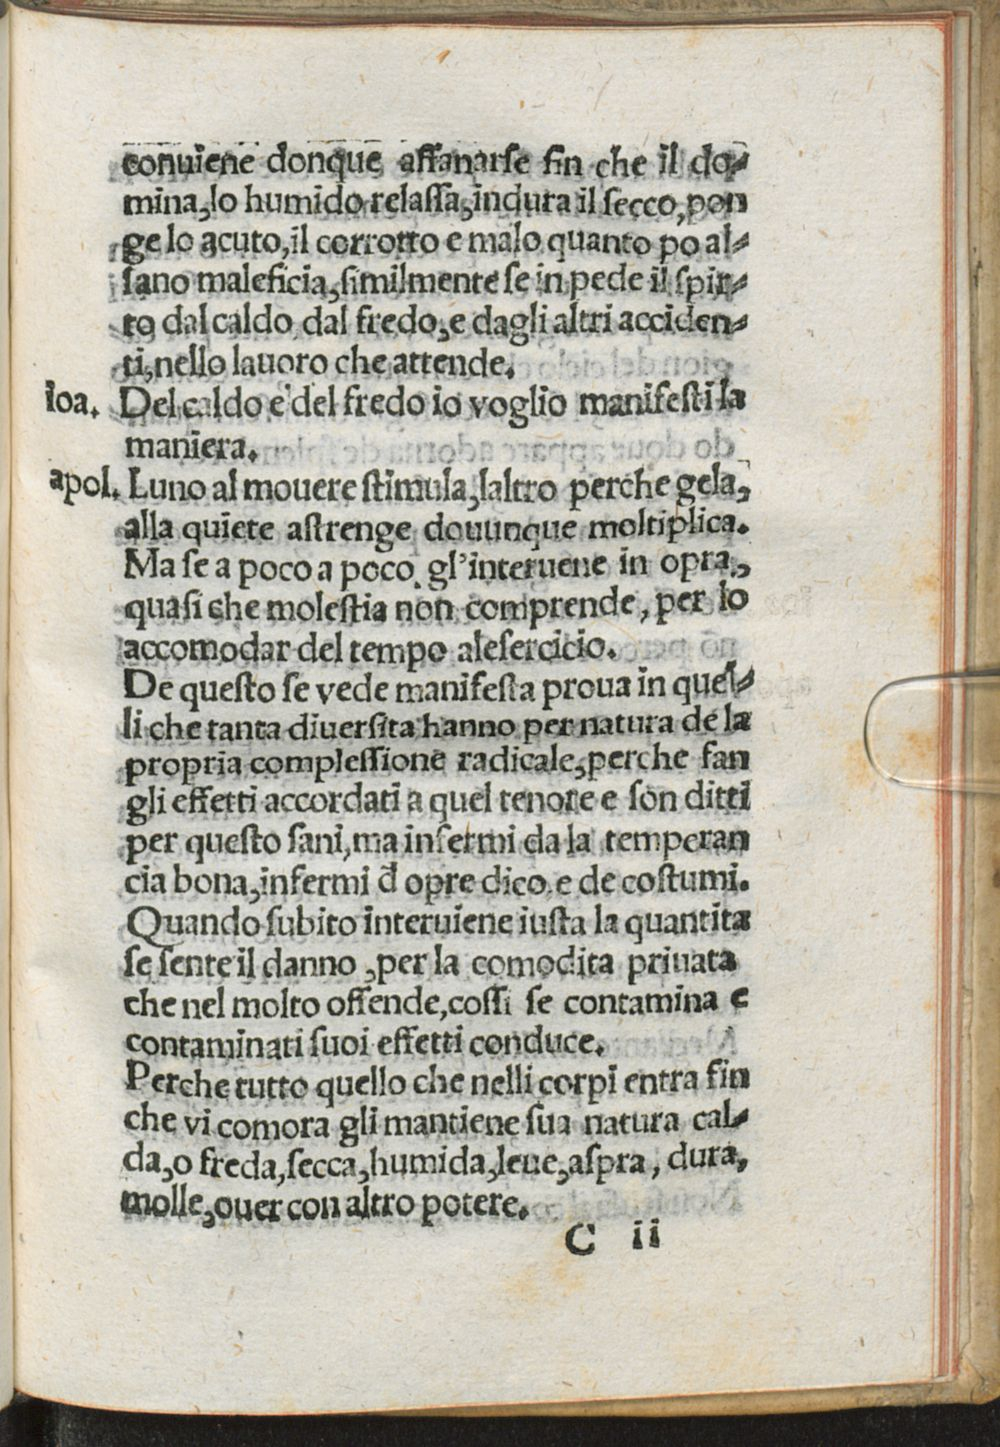 conuiene donque affanarse fin che il do-
mina, lo humido relassa, indura il secco, pon
ge lo acuto, il corrotto e malo quanto po al-
sano maleficia, similmente se in pede il spir-
to dal caldo dal fredo, e dagli altri acciden-
ti, nello lauoro che attende.
ioa. Del caldo e del fredo io voglio manifesti la
maniera.
apol. Luno al mouere stimula, laltro perche gela,
alla quiete astrenge douunque moltiplica.
Ma se a poco a poco gl'interuene in opra,
quasi che molestia non comprende, per lo
accomodar del tempo alesercicio.
De questo se vede manifesta proua in quel-
li che tanta diuersita hanno per natura de la
propria complessione radicale, perche fan
gli effetti accordati a quel tenore e son ditti
per questo sani, ma infermi da la temperan
cia bona, infermi d̄ opre dico e de costumi.
Quando subito interuiene iusta la quantita
se sente il danno, per la comodita priuata
che nel molto offende, cossi se contamina e
contaminati suoi effetti conduce.
Perche tutto quello che nelli corpi entra fin
che vi comora gli mantiene sua natura cal-
da, o freda, secca, humida, leue, aspra, dura,
molle, ouer con altro potere.
C ii